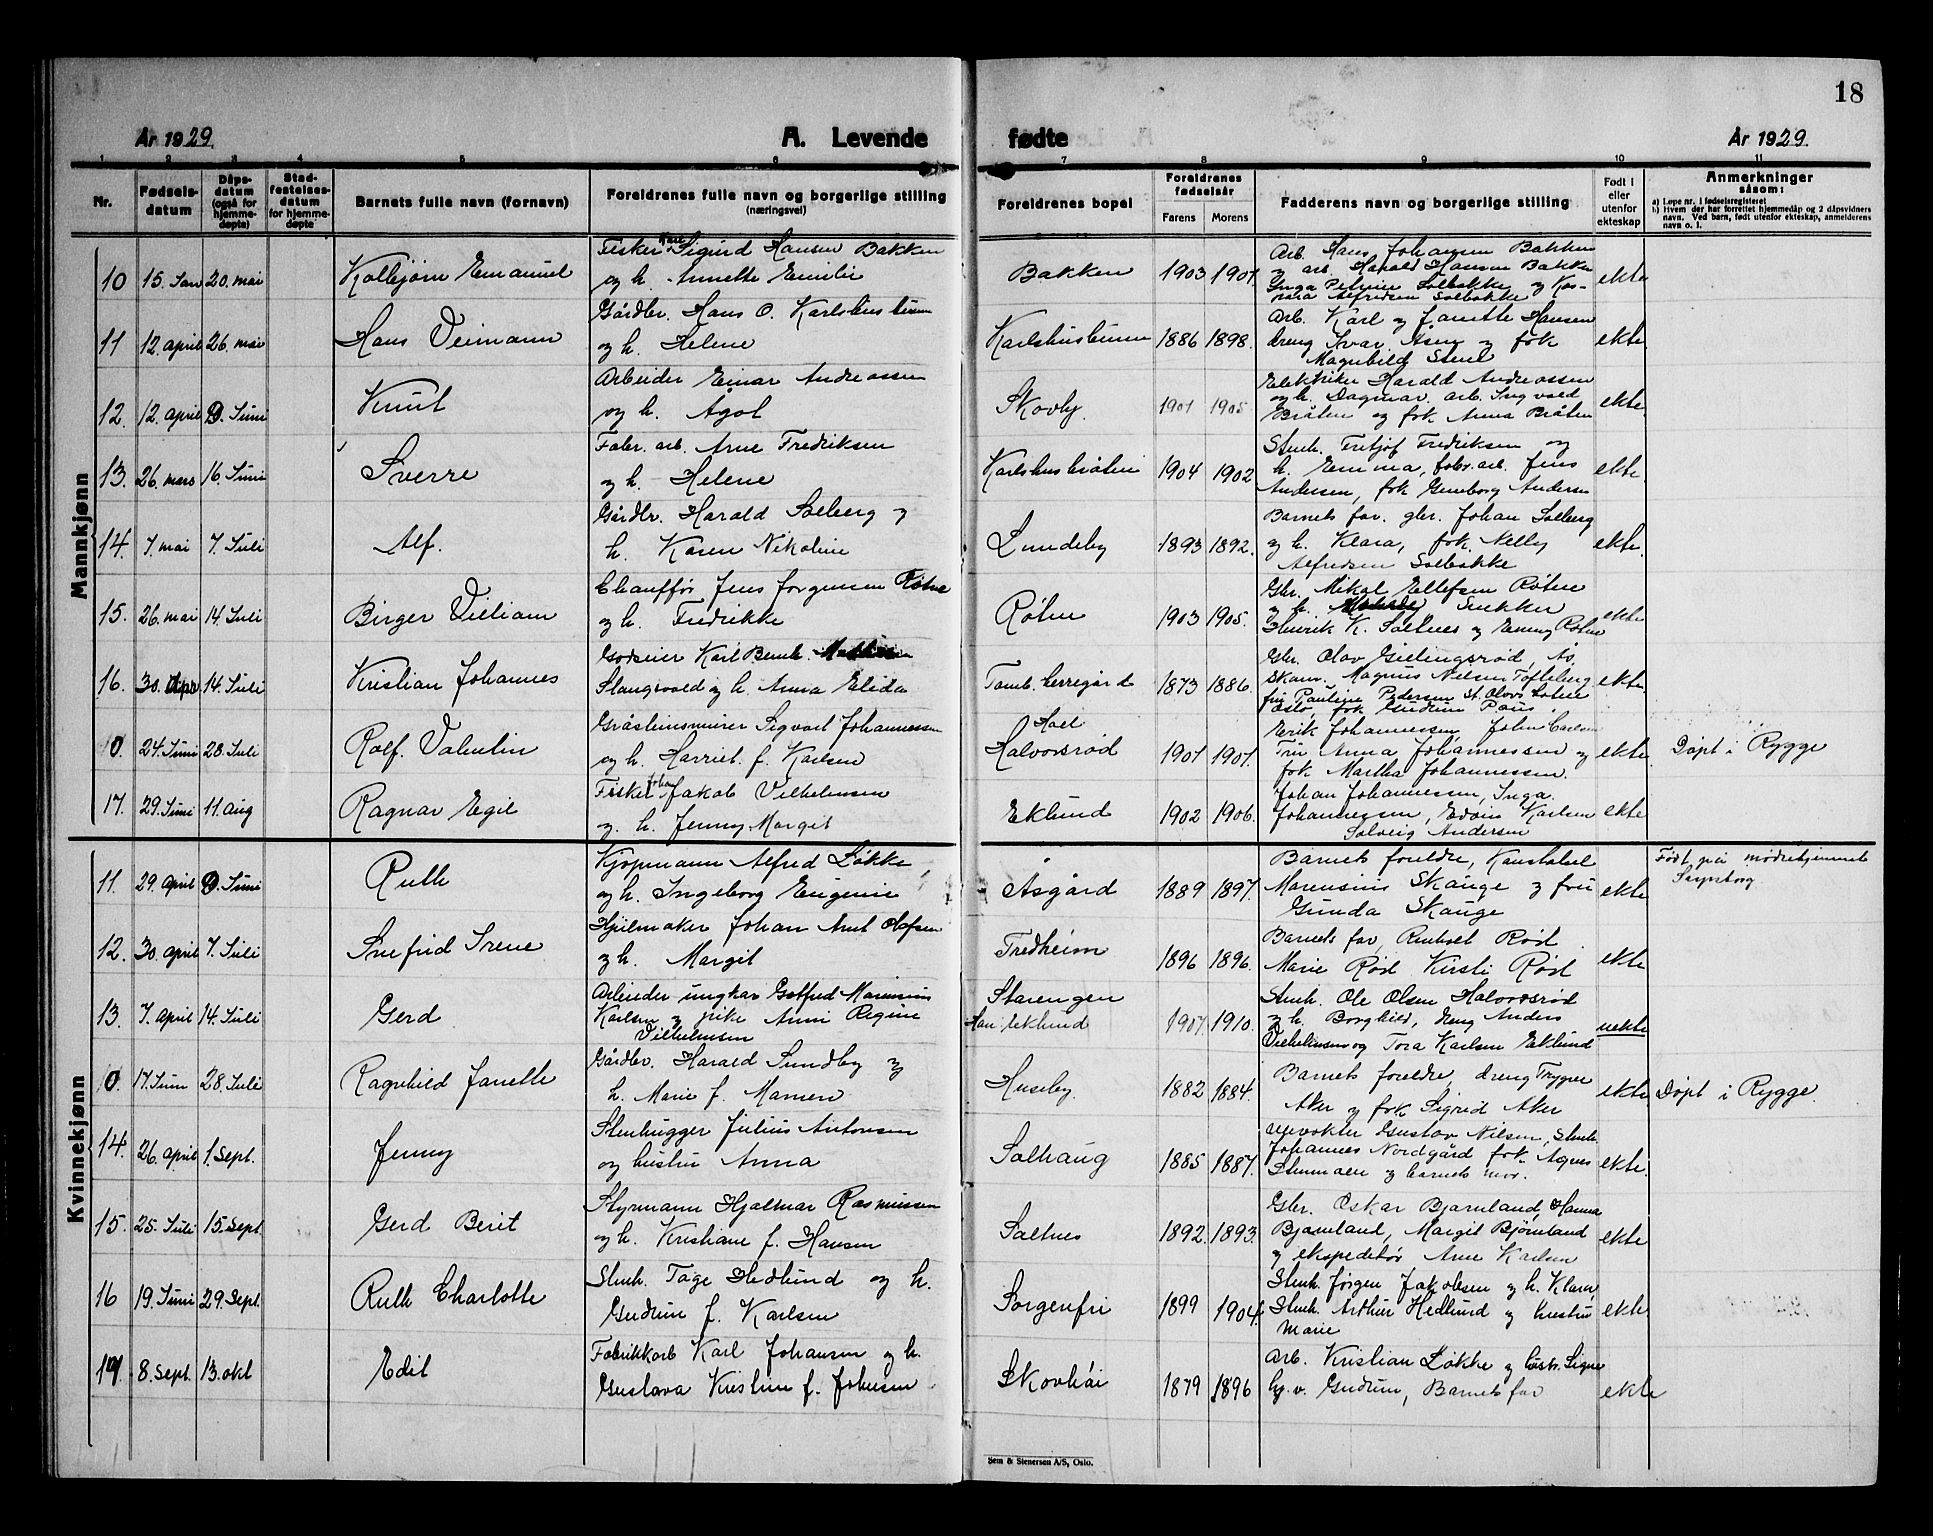 18
År 1929.
A. Levende fødte
År 1929.
1 2 3 4 5 6 7 8 9 10 11
Nr.
Fødselsdatum
Dåpsdatum (også for hjemmedøpte)
Stadfestelsesdatum for hjemmedøpte
Barnets fulle navn (fornavn)
Foreldrenes fulle navn og borgerlige stilling (næringsvei)
Foreldrenes bopel
Foreldrenes fødselsår
Farens Morens
Fadderens navn og borgerlige stilling
Født i eller utenfor ekteskap
Anmerkninger såsom:
a) Løpe nr. i fødselsregisteret
b) Hvem der har forrettet hjemmedåp og 2 dåpsvidners navn. Ved barn, født utenfor ekteskap, anmelderens navn o. l.
Mannkjønn
10 15. Jan 20. mai Kolbjørn Emanuel
Fisker Kåre Sigurd Hansen Bakken
og h. Annette Emilie
Bakken 1903 1901.
Arb. Hans Johansen Bakken
og arb. Harald Hansen Bakken
Inga Petrine Solbakke og Kas-
para Alfredsen Solbakke
ekte
11 12. april 26. mai Hans Veimann
Gårdbr. Hans O. Karlshustunn
og h. Helene
Karlshustunn 1886 1898.
Arb. Karl og Janette Hansen
dreng Ivar Åsen og frk
Magnhild Stene
ekte.
12 12. april 9. Juni Knut
Arbeider Einar Andreassen
og h. Ågot
Skovly. 1901 1905
Elektriker Harald Andreassen
og h. Dagmar. arb. Ingvald
Bråten og frk Anna Bråten
ekte.
13. 26. mars 16. Juni Sverre
Fabr. arb. Arne Fredriksen
og h. Helene
Karlshusbråten 1904 1902
Stenh. Fritjof Fredriksen og
h. Emma, fabr. arb. Jens
Andersen, frk Gineborg Andersen
ekte.
14. 7. mai 7. Juli Alf.
Gårdbr. Harald Solberg og
h. Karen Nikoline
Lundeby 1893 1892.
Barnets far. gbr. Johan Solberg
og h. Klara, frk. Nelly
Alfredsen Solbakke
ekte.
15. 26. mai 14. Juli Birger Villiam
Chauffør Jens Jørgensen Røtne
og h. Fredrikke
Røtne 1903 1905.
Gbr. Mikal Ellefsen Røtne
og h. Snekker
Henrik K. Saltnes og Emmy Røtne
ekte
16. 30. Apr 14. Juli Kristian Johannes
Godseier Karl Bernh.
Stangsvold og h. Anna Elida
Tomb. herregård 1873 1886.
Gbr. Olav Gillingsrød, Ås,
Skanv. Magnus Nilsen Tofteberg
fru Pauline Pedersen St. Olavs Lotne
Oslo frk Gudrun Paus
ekte.
0 24. Juni 28. Juli Rolf. Valentin
Gråstensmurer Sigvart Johannessen
og h. Harriet. f. Karlsen
Hoel
Halvorsrød 1901 1901.
Erik Johannessen John Carlsen
Fru Anna Johannessen og
frk Martha Johannessen.
ekte. Døpt i Rygge
17. 29. Juni 11 aug Ragnar Egil
Fisker Johan Jakob Vilhelmsen
og. h. Jenny Margit
Eklund 1902 1906.
Johan Johannessen, Inga
Johannessen, Edvin Karlsen
Solveig Andersen
ekte
Kvinnekjønn
11. 29. april 9. Juni Ruth
Kjøpmann Alfred Løkke
og h. Ingeborg Eugenie
Åsgård 1889 1897.
Barnets foreldre, Konstabel
Marensius Skauge og fru
Gunda Skauge
ekte
Født på mødrehjemmet
Sarpsborg
12. 30. april 7. Juli Snefrid Irene
Hjulmaker Johan Arnt Olafsen
og h. Margit
Fredheim 1896 1896.
Barnets far, Reinholt Rød
Marie Rød Kirsti Rød
ekte
13. 7. april 14. Juli Gerd
Arbeider ungkar Gotfred Marensius
Karlsen og pike Anni Regine
Vilhelmsen
Starengen
Hun: Eklund 1907. 1910.
Stenh. Ole Olsen Halvorsrød
og h. Borghild, dreng Anders
Vilhelmsen og Tora Karlsen Eklund
uekte
0. 17. Juni 28. Juli Ragnhild Janette
Gårdbr. Harald Sundby og
h. Marie f. Mamen
Huseby. 1882 1884.
Barnets foreldre, dreng Trygve
Aker og frk Sigrid Aker
ekte Døpt i Rygge.
14. 26. april 1. Sept. Jenny
Stenhugger Julius Antonsen
og hustru Anna
Solhaug 1885 1887.
Veivokter Gustav Nilsen, Stenh.
Johannes Nordgård frk. Agnes
Stenmoen og barnets mor.
ekte.
15. 25. Juli 15. Sept. Gerd Berit
Styrmann Hjalmar Rasmussen
og h. Kristiane f. Hansen
Saltnes 1892. 1893.
Gbr. Oskar Bjørnland, Hanna
Bjørnland, Margit Bjørnland
og ekspeditør Arne Karlsen
ekte
16 19. Juni 29. Sept. Ruth Charlotte
Stenh. Tage Hedlund og h.
Gudrun f. Karlsen
Sorgenfri 1899 1904.
Stenh. Jørgen Jakobsen og h. Klara,
Stenh. Arthur Hedlund og hustru
Marie
ekte.
17. 8. Sept. 13. okt Edit
Fabrikkarb Karl Johansen og h.
Gustava Kristine f. Johnsen
Skovhøi 1879 1896
Arb. Kristian Løkke og hustr. Signe
hj.v. Gudrun, Barnets far
ekte
Sem & Stenersen A/S, Oslo.